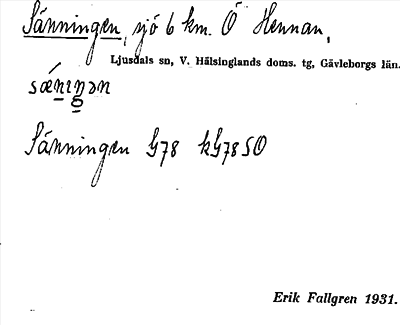 Sänningen, sjö 6 km. Ö Hennan,
Ljusdals sn, V. Hälsinglands doms. tg, Gävleborgs län.
sǽniŋən
Sänningen G78 kG78SO
Erik Fallgren 1931.